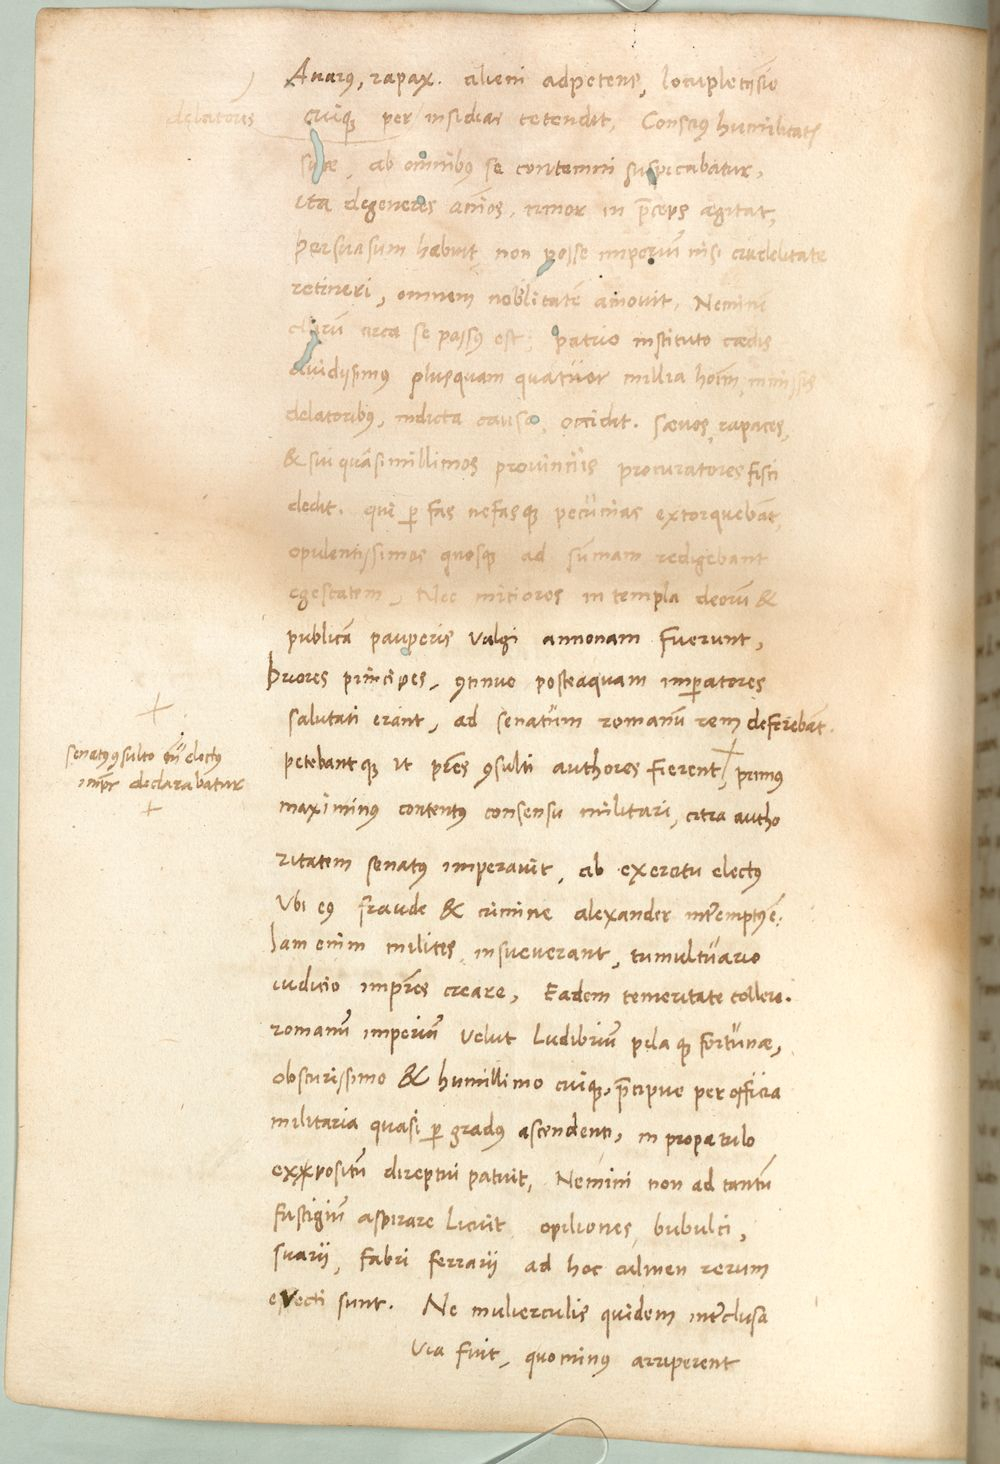 Auarꝰ, rapax. alieni adpetens, locupletissīo
delatores
cuiqꝫ per insidias tetendit, Consciꝰ humilitatis
suæ, ab omnibꝰ se contemni suspicabatur,
ita degeneres aīos, timor in p̄ceps agitat,
persuasum habuit non posse imperiū nisi crudelitate
retineri, omnem nobilitatē amouit, Nemine
clarū circa se passꝰ est; patrio instituto cædis
auidissimꝰ plusquam quatuor millia hoīm, inmissis
delatoribꝰ, indicta causa, occidit. sæuos, rapaces,
& sui quāsimillimos prouinciis procuratores fisci
dedit. qui ꝑ fas nefasqꝫ pecunias extorquebāt,
opulentissimos quosqꝫ ad sūmam redigebant
egestatem, Nec mitiores in templa deorū &
publicā pauperis vulgi annonam fuerunt,
Priores principes, ꝯtinuo posteaquam imꝑatores
salutati erant, ad senatum romanū rem deferebāt.
senatꝰ ꝯsulto tū electꝰ
impr̄ declarabatur
petebantqꝫ ut pr̄es ꝯsulti authores fierent, primꝰ
maximinꝰ contentꝰ consensu militari, citra autho
ritatem senatꝰ imperauit, ab exercitu electꝰ
Vbi eꝰ fraude & crimine alexander inter̄emptꝰ ē.
Iam enim milites insueuerant, tumultuario
iudicio impr̄es creare, Eadem temeritate tollere.
romanū imperiū velut ludibriū pila qꝫ fortunæ,
obscurissimo & humillimo cuiqꝫ, p̄cipue per officia
militaria quasi ꝑ gradus ascendenti, in propatulo
expositū direptui patuit, Nemini non ad tantū
fastigiū aspirare licuit opiliones, bubulci,
suarii, fabri ferrarii ad hoc culmen rerum
euecti sunt. Ne mulierculis quidem interclusa
via fuit, quominꝰ arriperent